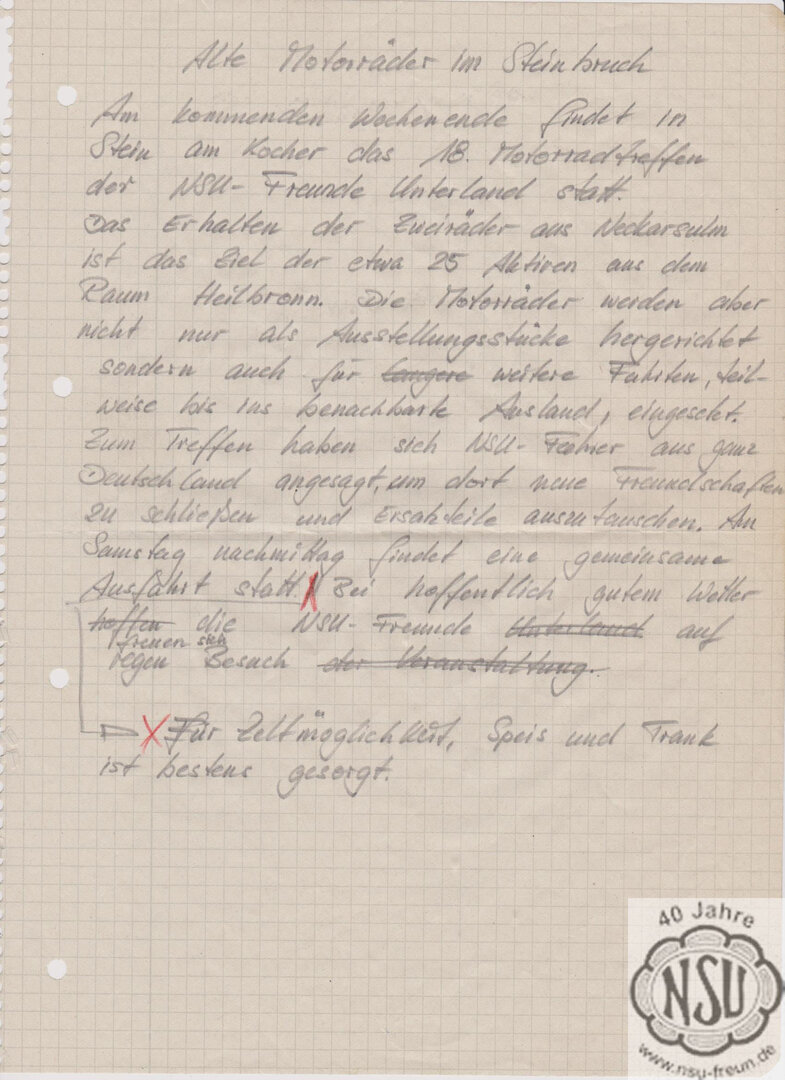 Alte Motorräder im Steinbruch
Am kommenden Wochenende findet in
Stein am Kocher das 18. Motorradtreffen
der NSU-Freunde Unterland statt.
Das Erhalten der Zweiräder aus Neckarsulm
ist das Ziel der etwa 25 Aktiven aus dem
Raum Heilbronn. Die Motorräder werden aber
nicht nur als Ausstellungsstücke hergerichtet
sondern auch für längere weitere Fahrten, teil-
weise bis ins benachbarte Ausland, eingesetzt.
Zum Treffen haben sich NSU-Fahrer aus ganz
Deutschland angesagt, um dort neue Freundschaften
zu schließen und Ersatzteile auszutauschen. Am
Samstag nachmittag findet eine gemeinsame
Ausfahrt statt. Bei hoffentlich gutem Wetter
hoffen die NSU-Freunde Unterland auf
freuen sich
regen Besuch der Veranstaltung.
Für Zeltmöglichkeit, Speis und Trank
ist bestens gesorgt.
40 Jahre
NSU
www.nsu-freun.de